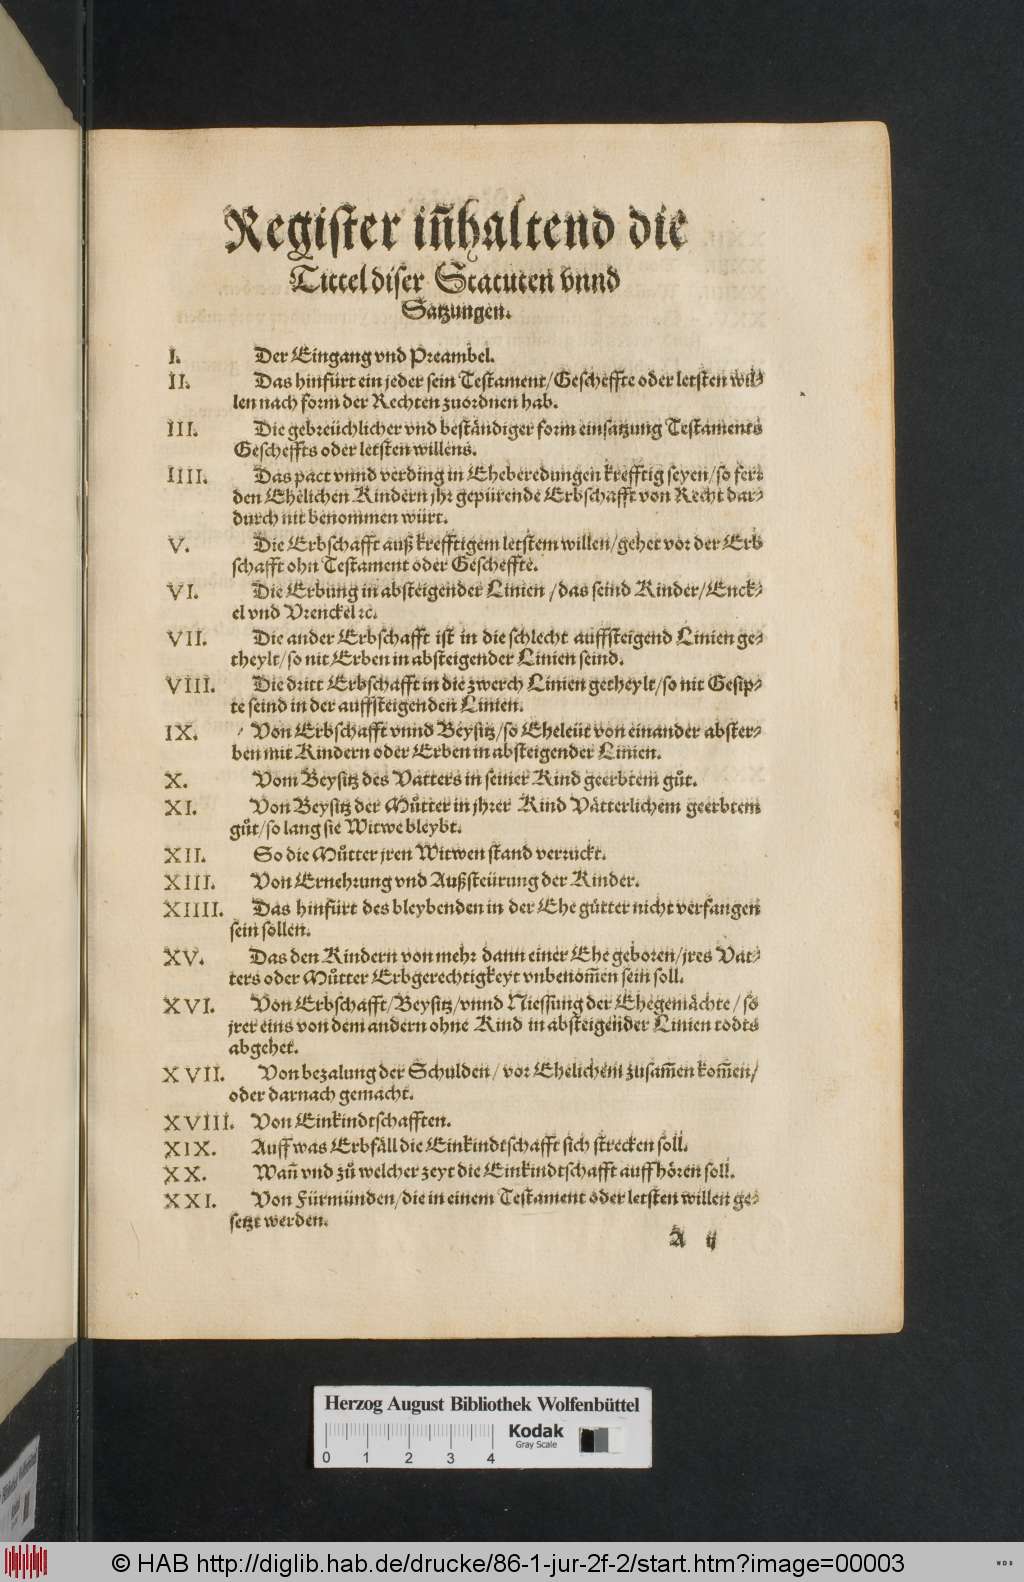 Register iñhaltend die
Tittel diser Statuten vnnd
Satzungen.
I. Der Eingang vnd Preambel.
II. Das hinfürt ein jeder sein Testament/Gescheffte oder letsten wil-
len nach form der Rechten zuordnen hab.
III. Die gebreüchlicher vnd beständiger form einsatzung Testaments
Gescheffts oder letsten willens.
IIII. Das pact vnnd verding in Eheberedungen krefftig seyen/so fer:
den Ehelichen Kindern jhr gepürende Erbschafft von Recht dar-
durch nit benommen würt.
V. Die Erbschafft auß krefftigem letstem willen/gehet vor der Erb
schafft ohn Testament oder Gescheffte.
VI. Die Erbung in absteigender Linien /das seind Kinder/Enck-
el vnd Vrenckel ꝛc.
VII. Die ander Erbschafft ist in die schlecht auffsteigend Linien ge-
theylt/so nit Erben in absteigender Linien seind.
VIII. Die dritt Erbschafft in die zwerch Linien getheylt/so nit Gesip-
te seind in der auffsteigenden Linien.
IX. Von Erbschafft vnnd Beysitz/so Eheleüt von einander abster-
ben mit Kindern oder Erben in absteigender Linien.
X. Vom Beysitz des Vatters in seiner Kind geerbtem gůt.
XI. Von Beysitz der Můtter in jhrer Kind Vätterlichem geerbtem
gůt/so lang sie Witwe bleybt.
XII. So die Můtter jren Witwen stand verruckt.
XIII. Von Ernehrung vnd Außsteürung der Kinder.
XIIII. Das hinfürt des bleybenden in der Ehe gütter nicht verfangen
sein sollen.
XV. Das den Kindern von mehr dann einer Ehe geboren/jres Vat-
ters oder Můtter Erbgerechtigkeyt vnbenom̄en sein soll.
XVI. Von Erbschafft/Beysitz/vnnd Niessung der Ehegemächte/ so
jrer eins von dem andern ohne Kind in absteigender Linien todts
abgehet.
XVII. Von bezalung der Schulden/ vor Ehelichem zusam̄en kom̄en/
oder darnach gemacht.
XVIII. Von Einkindtschafften.
XIX. Auff was Erbfäll die Einkindtschafft sich strecken soll.
XX. Wañ vnd zů welcher zeyt die Einkindtschafft auffhören soll.
XXI. Von Fürmünden/die in einem Testament oder letsten willen ge-
setzt werden.
A ij
Herzog August Bibliothek Wolfenbüttel
Kodak
Gray Scale
0 1 2 3 4
© HAB http://diglib.hab.de/drucke/86-1-jur-2f-2/start.htm?image=00003